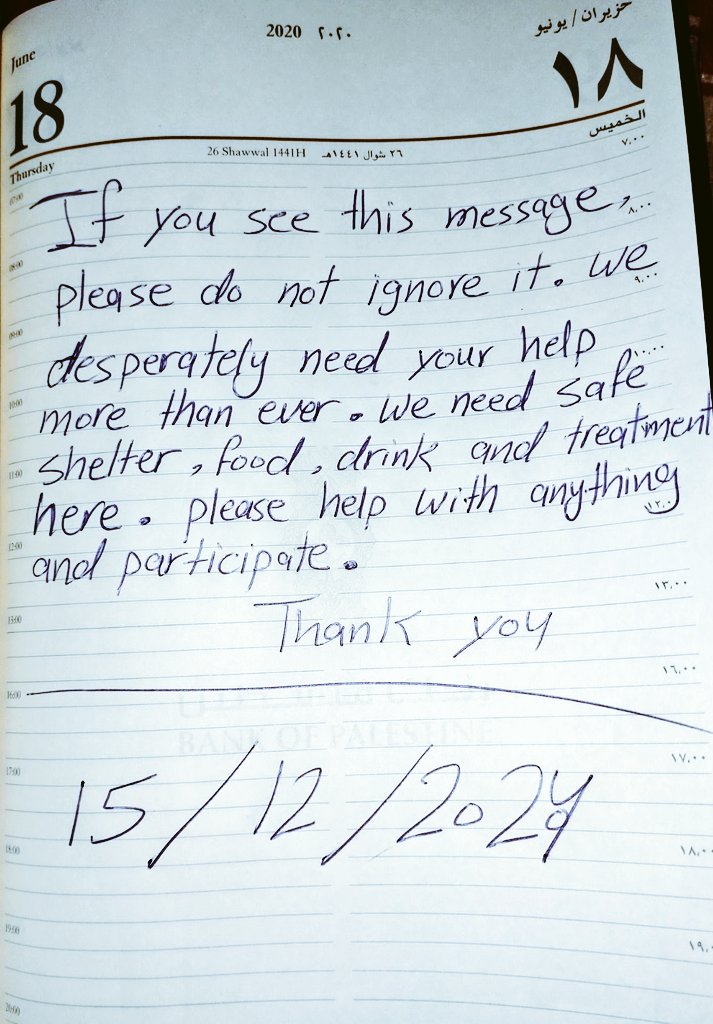 2020 ٢٠٢٠
حزيران / يونيو
June
18
١٨
Thursday
26 Shawwal 1441H ٢٦ شوال ١٤٤١هـ
الخميس
07:00 ٧,٠٠
If you see this message,
٨,٠٠
08:00
please do not ignore it. we
٩,٠٠
09:00
desperately need your help
١٠,٠٠
10:00
more than ever. we need safe
shelter, food, drink and treatment
11:00
here. please help with anything
١٢,٠٠
12:00
and participate.
١٣,٠٠
13:00
Thank you
١٦,٠٠
16:00
BANK OF PALESTINE
١٧,٠٠
17:00
15/12/2024
18:00 ١٨,٠٠
19:00 ١٩,٠٠
20:00